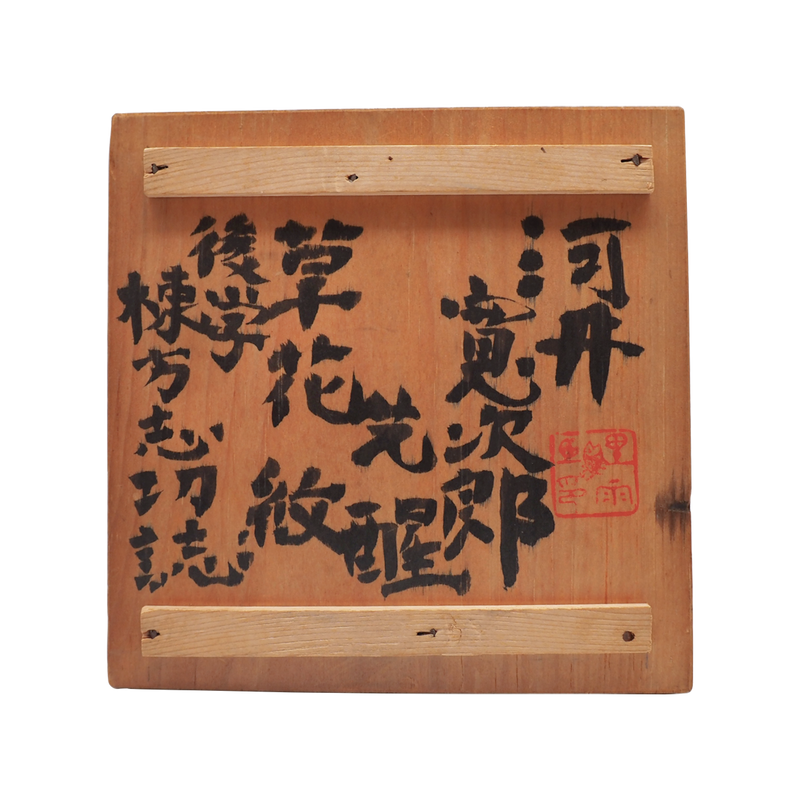 河井
寛次郎
先醒
草花
紋
後学
棟方志功誌